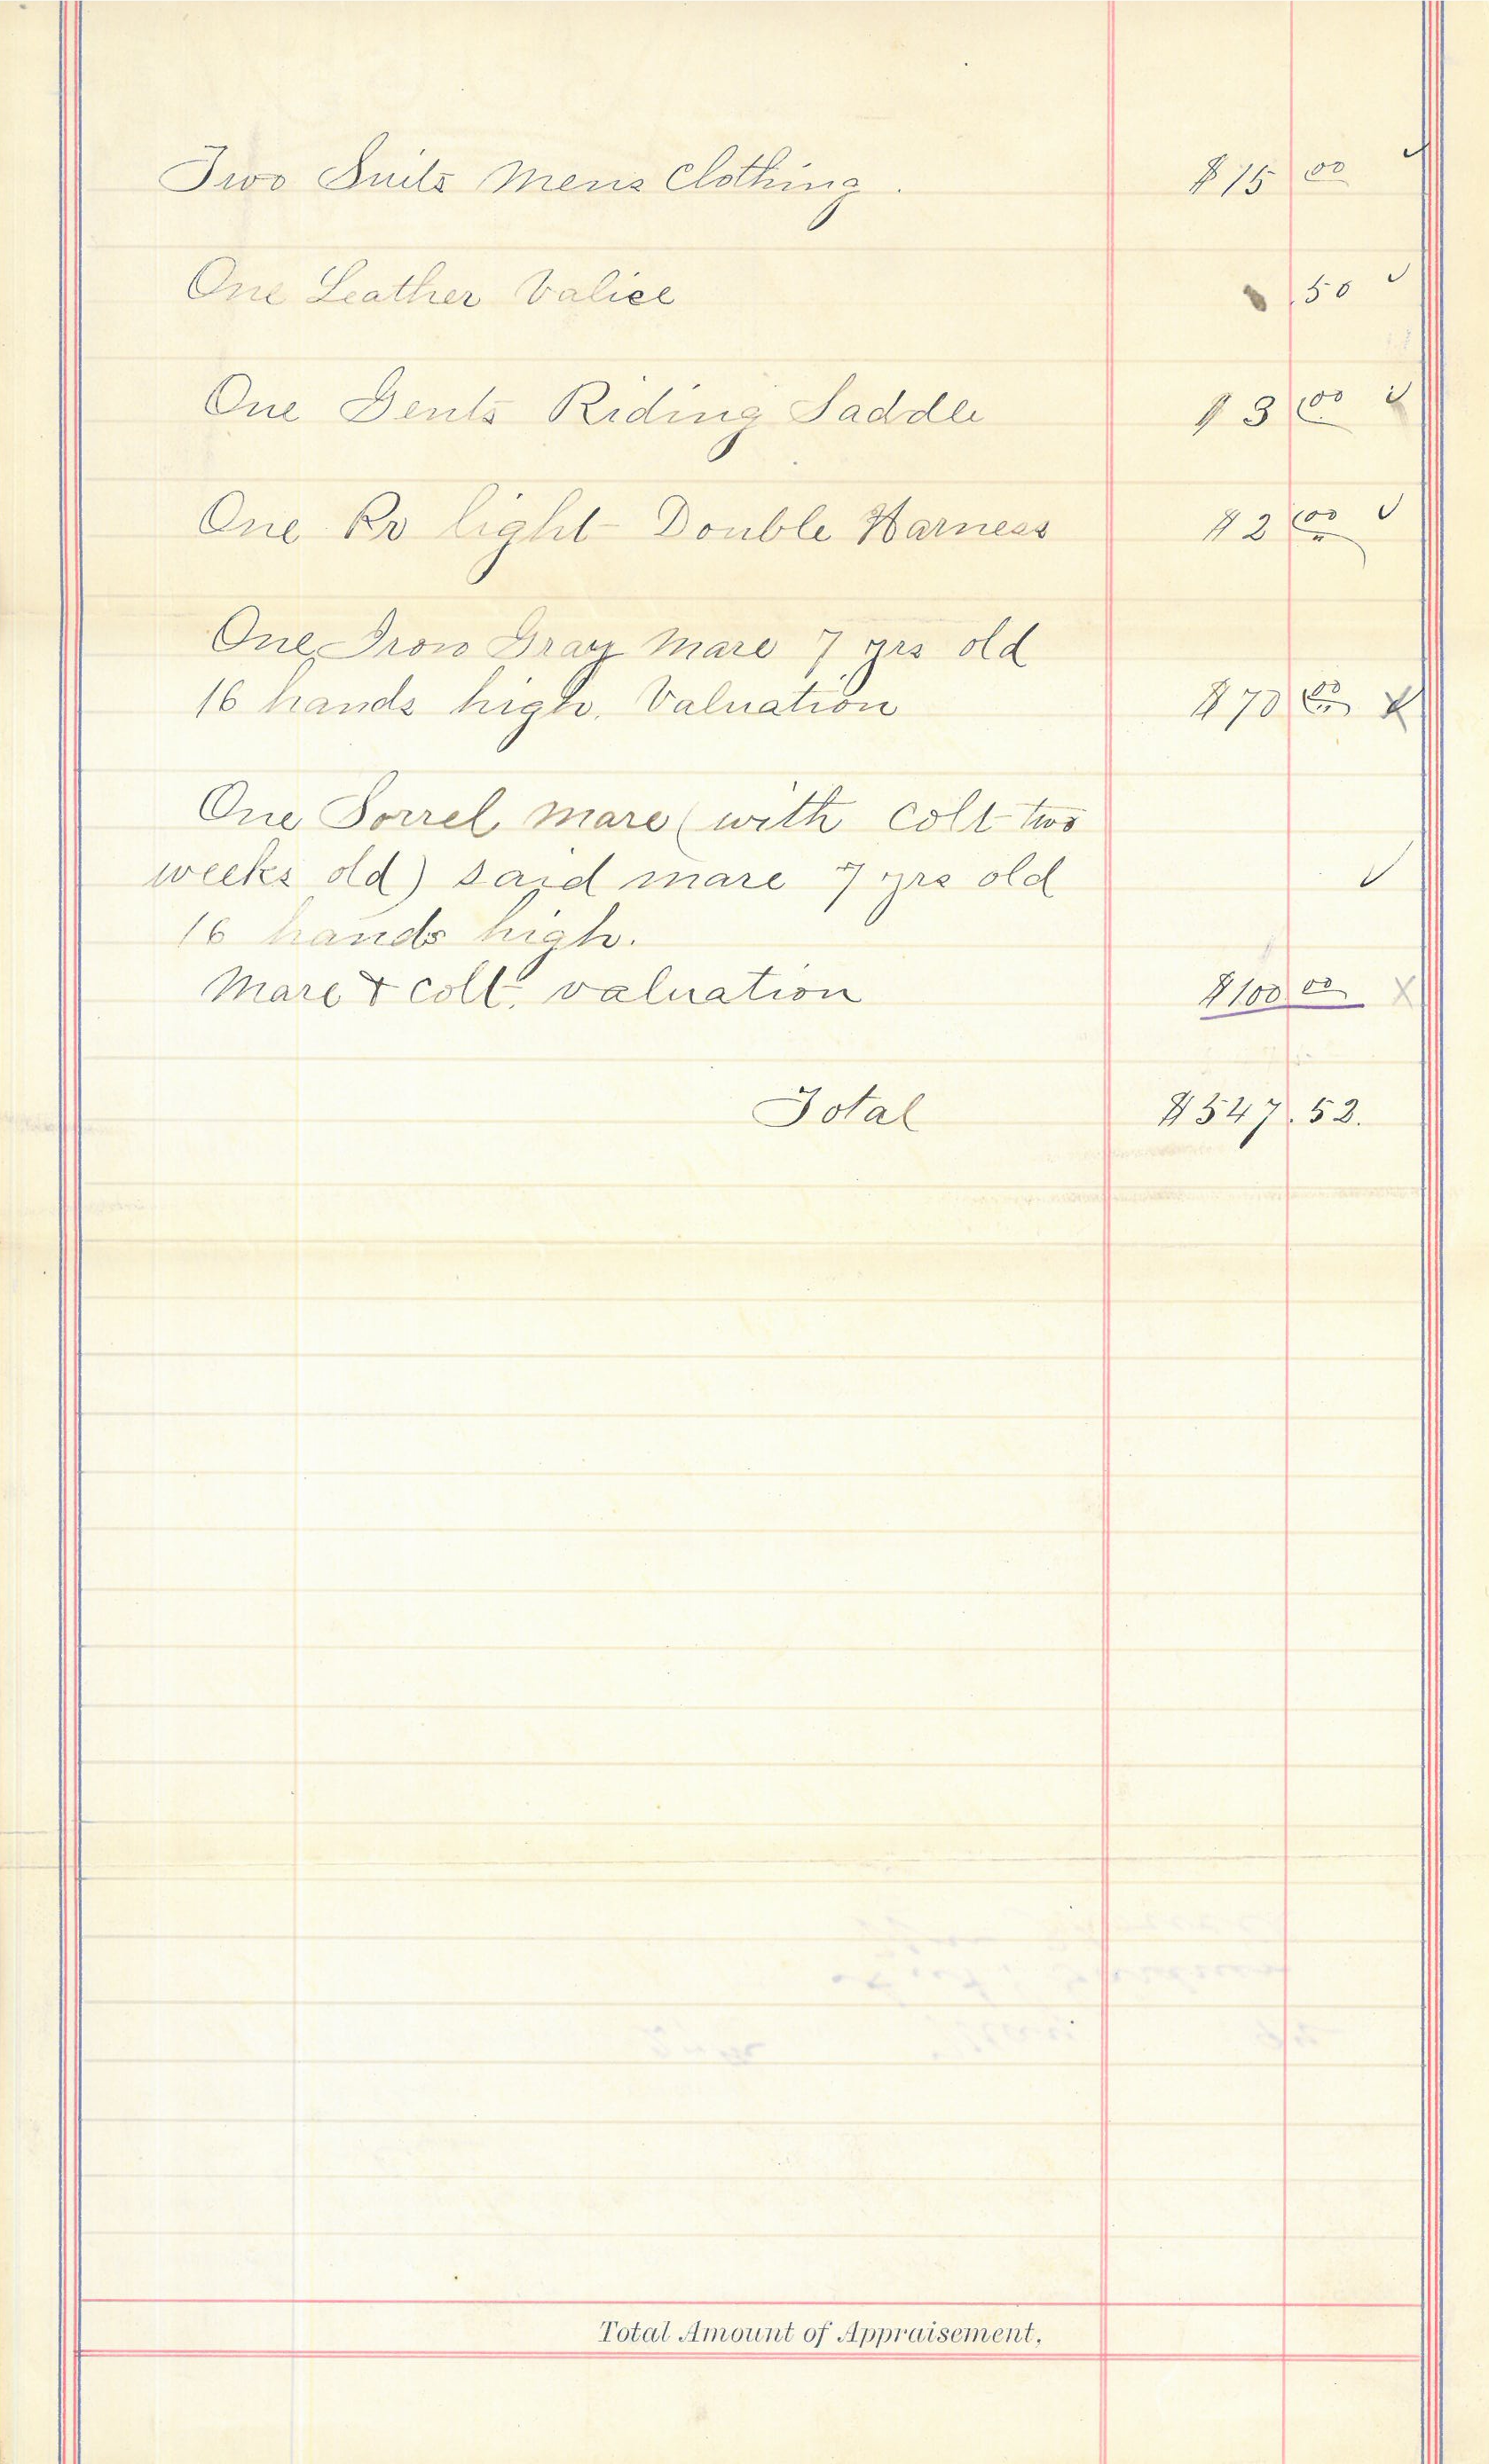 Two Suits Mens Clothing. $15 00 ✓
One Leather Valice 50 ✓
One Gents Riding Saddle $3 00 ✓
One Pr light Double Harness $2 00 ✓
One Iron Gray Mare 7 yrs old
16 hands high. Valuation $70 00 X
One Sorrel Mare (with Colt two
weeks old) said mare 7 yrs old ✓
16 hands high.
Mare & Colt, valuation $100 00 X
Total $547.52.
Total Amount of Appraisement,